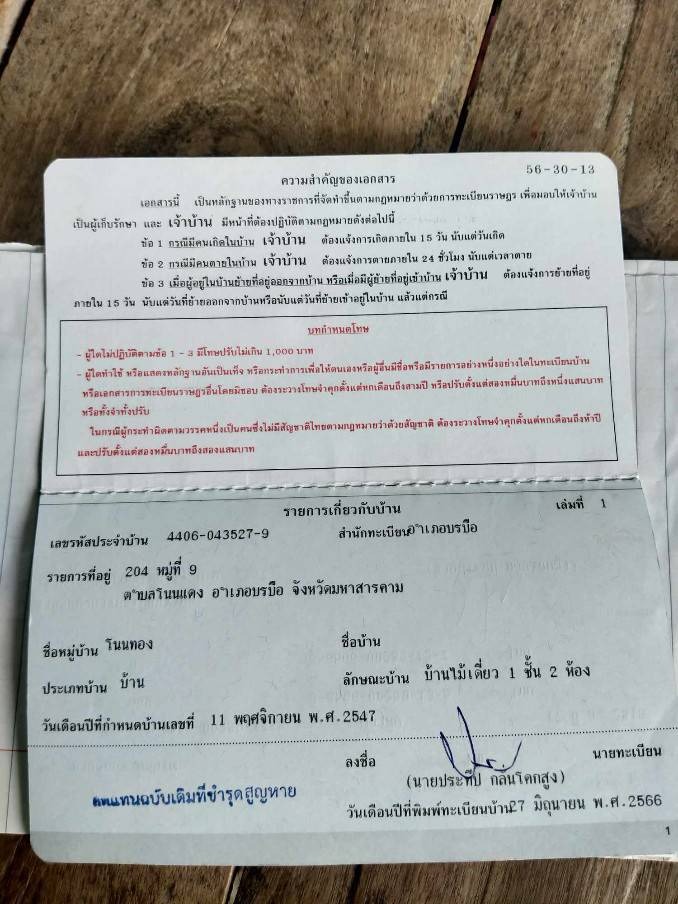 56-30-13
ความสำคัญของเอกสาร
เอกสารนี้ เป็นหลักฐานของทางราชการที่จัดทำขึ้นตามกฎหมายว่าด้วยการทะเบียนราษฎร เพื่อมอบให้เจ้าบ้าน
เป็นผู้เก็บรักษา และ เจ้าบ้าน มีหน้าที่ต้องปฏิบัติตามกฎหมายดังต่อไปนี้
ข้อ 1 กรณีมีคนเกิดในบ้าน เจ้าบ้าน ต้องแจ้งการเกิดภายใน 15 วัน นับแต่วันเกิด
ข้อ 2 กรณีมีคนตายในบ้าน เจ้าบ้าน ต้องแจ้งการตายภายใน 24 ชั่วโมง นับแต่เวลาตาย
ข้อ 3 เมื่อผู้อยู่ในบ้านย้ายที่อยู่ออกจากบ้าน หรือเมื่อมีผู้ย้ายที่อยู่เข้าบ้าน เจ้าบ้าน ต้องแจ้งการย้ายที่อยู่
ภายใน 15 วัน นับแต่วันที่ย้ายออกจากบ้านหรือนับแต่วันที่ย้ายเข้าอยู่ในบ้าน แล้วแต่กรณี
บทกำหนดโทษ
- ผู้ใดไม่ปฏิบัติตามข้อ 1 - 3 มีโทษปรับไม่เกิน 1,000 บาท
- ผู้ใดทำ ใช้ หรือแสดงหลักฐานอันเป็นเท็จ หรือกระทำการเพื่อให้ตนเองหรือผู้อื่นมีชื่อหรือมีรายการอย่างหนึ่งอย่างใดในทะเบียนบ้าน
หรือเอกสารการทะเบียนราษฎรอื่นโดยมิชอบ ต้องระวางโทษจำคุกตั้งแต่หกเดือนถึงสามปี หรือปรับตั้งแต่สองหมื่นบาทถึงหนึ่งแสนบาท
หรือทั้งจำทั้งปรับ
ในกรณีผู้กระทำผิดตามวรรคหนึ่งเป็นคนซึ่งไม่มีสัญชาติไทยตามกฎหมายว่าด้วยสัญชาติ ต้องระวางโทษจำคุกตั้งแต่หกเดือนถึงห้าปี
และปรับตั้งแต่สองหมื่นบาทถึงสองแสนบาท
รายการเกี่ยวกับบ้าน เล่มที่ 1
เลขรหัสประจำบ้าน 4406-043527-9 สำนักทะเบียน อำเภอบรบือ
รายการที่อยู่ 204 หมู่ที่ 9
ตำบลโนนแดง อำเภอบรบือ จังหวัดมหาสารคาม
ชื่อหมู่บ้าน โนนทอง ชื่อบ้าน
ประเภทบ้าน บ้าน ลักษณะบ้าน บ้านไม้เดี่ยว 1 ชั้น 2 ห้อง
วันเดือนปีที่กำหนดบ้านเลขที่ 11 พฤศจิกายน พ.ศ.2547
ลงชื่อ นายทะเบียน
(นายประทีป กลิ่นโคกสูง)
ออกแทนฉบับเดิมที่ชำรุดสูญหาย
วันเดือนปีที่พิมพ์ทะเบียนบ้าน 27 มิถุนายน พ.ศ.2566
1